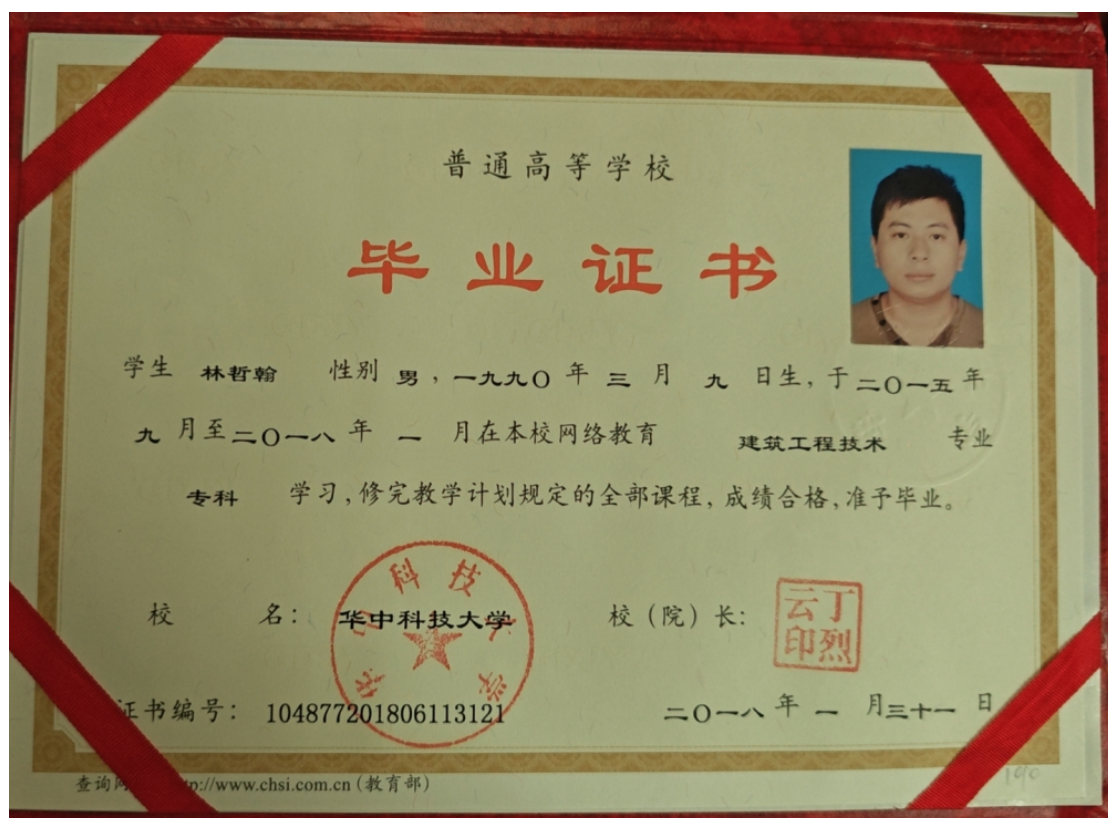 普通高等学校
毕业证书
学生 林哲翰 性别 男，一九九〇 年 三 月 九 日生，于二〇一五年
九 月至二〇一八 年 一 月在本校网络教育 建筑工程技术 专业
专科 学习，修完教学计划规定的全部课程，成绩合格，准予毕业。
校 名： 华中科技大学 校（院）长： 丁烈云印
证书编号： 104877201806113121 二〇一八 年 一 月三十一 日
查询 p://www.chsi.com.cn (教育部)